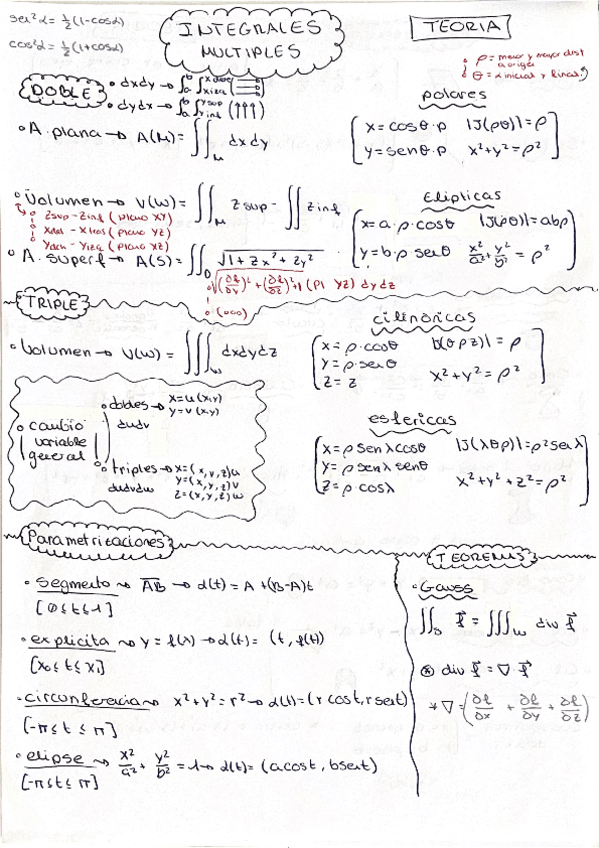 sen²α = ½(1-cosα)
cos²α = ½(1+cosα)
INTEGRALES
MULTIPLES
TEORIA
ρ = menor y mayor dist
a origen
θ = α inicial y final
DOBLE
• dxdy → ∫ₐᵇ ∫xizqxdcha
• dydx → ∫ₐᵇ ∫yinfysup (↑↑↑)
• A. plana → A(M) = ∬_M dxdy
polares
x = cosθ·ρ |J(ρθ)| = ρ
y = senθ·ρ x²+y² = ρ²
• Volumen → V(W) = ∬_M zsup - ∬ zinf
zsup - zinf (plano XY)
(plano YZ)
(plano XZ)
Elipticas
x = a·ρ·cosθ |J(ρθ)| = abρ
y = b·ρ senθ x²/a² + y²/b² = ρ²
• A. superf → A(S) = ∬_D √1 + zx² + zy²
√(∂f/∂y)² + (∂f/∂z)² + 1 (Pl YZ) dydz
(ooo)
TRIPLE
• Volumen → V(W) = ∭_W dxdydz
cilindricas
x = ρ·cosθ |J(θρz)| = ρ
y = ρ·senθ
z = z x²+y² = ρ²
• cambio
variable
general
• dobles → x = u(x,y)
y = v(x,y)
dudv
• triples → x = (x,y,z)u
dudvdw y = (x,y,z)v
z = (x,y,z)w
esfericas
x = ρ senλ cosθ |J(λθρ)| = ρ² senλ
y = ρ senλ senθ
z = ρ·cosλ x²+y²+z² = ρ²
Parametrizaciones
TEOREMAS
• segmento ⇝ AB → α(t) = A + (B-A)t
[0 ≤ t ≤ 1]
• explicita ⇝ y = f(x) → α(t) = (t, f(t))
[x₀ ≤ t ≤ x₁]
• circunferencia ⇝ x²+y² = r² → α(t) = (r cost, r sent)
[-π ≤ t ≤ π]
• elipse ⇝ x²/a² + y²/b² = 1 → α(t) = (acost, bsent)
[-π ≤ t ≤ π]
• Gauss
∬_S f⃗ = ∭_W div f⃗
⊛ div f⃗ = ∇ f⃗
* ∇ = (∂f/∂x + ∂f/∂y + ∂f/∂z)